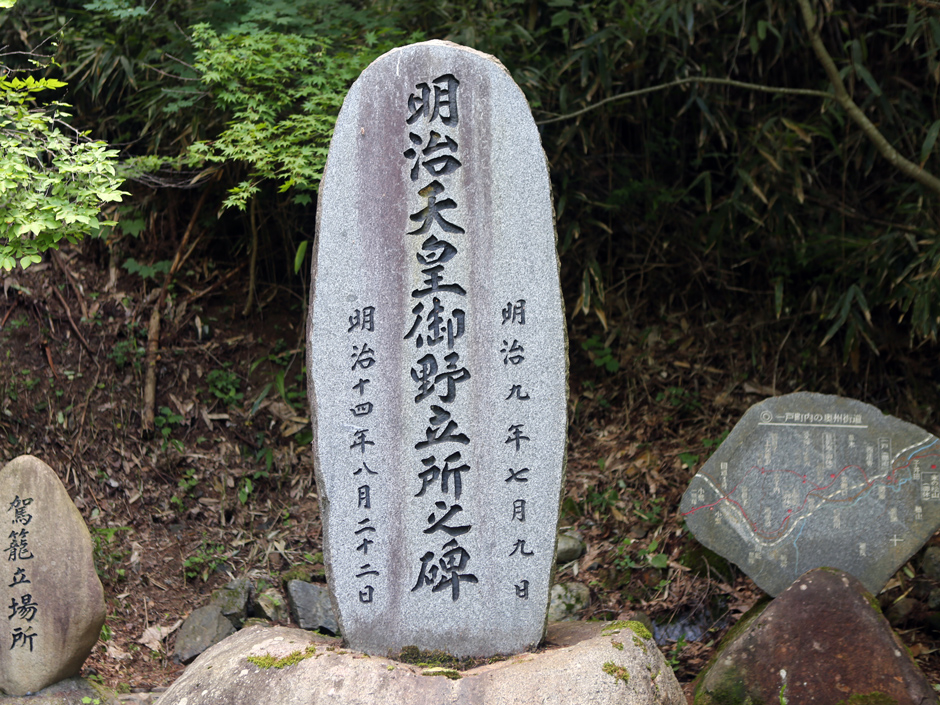 明治天皇御野立所之碑
明治九年七月九日
明治十四年八月二十二日
駕籠立場所
一戸町内の奥州街道